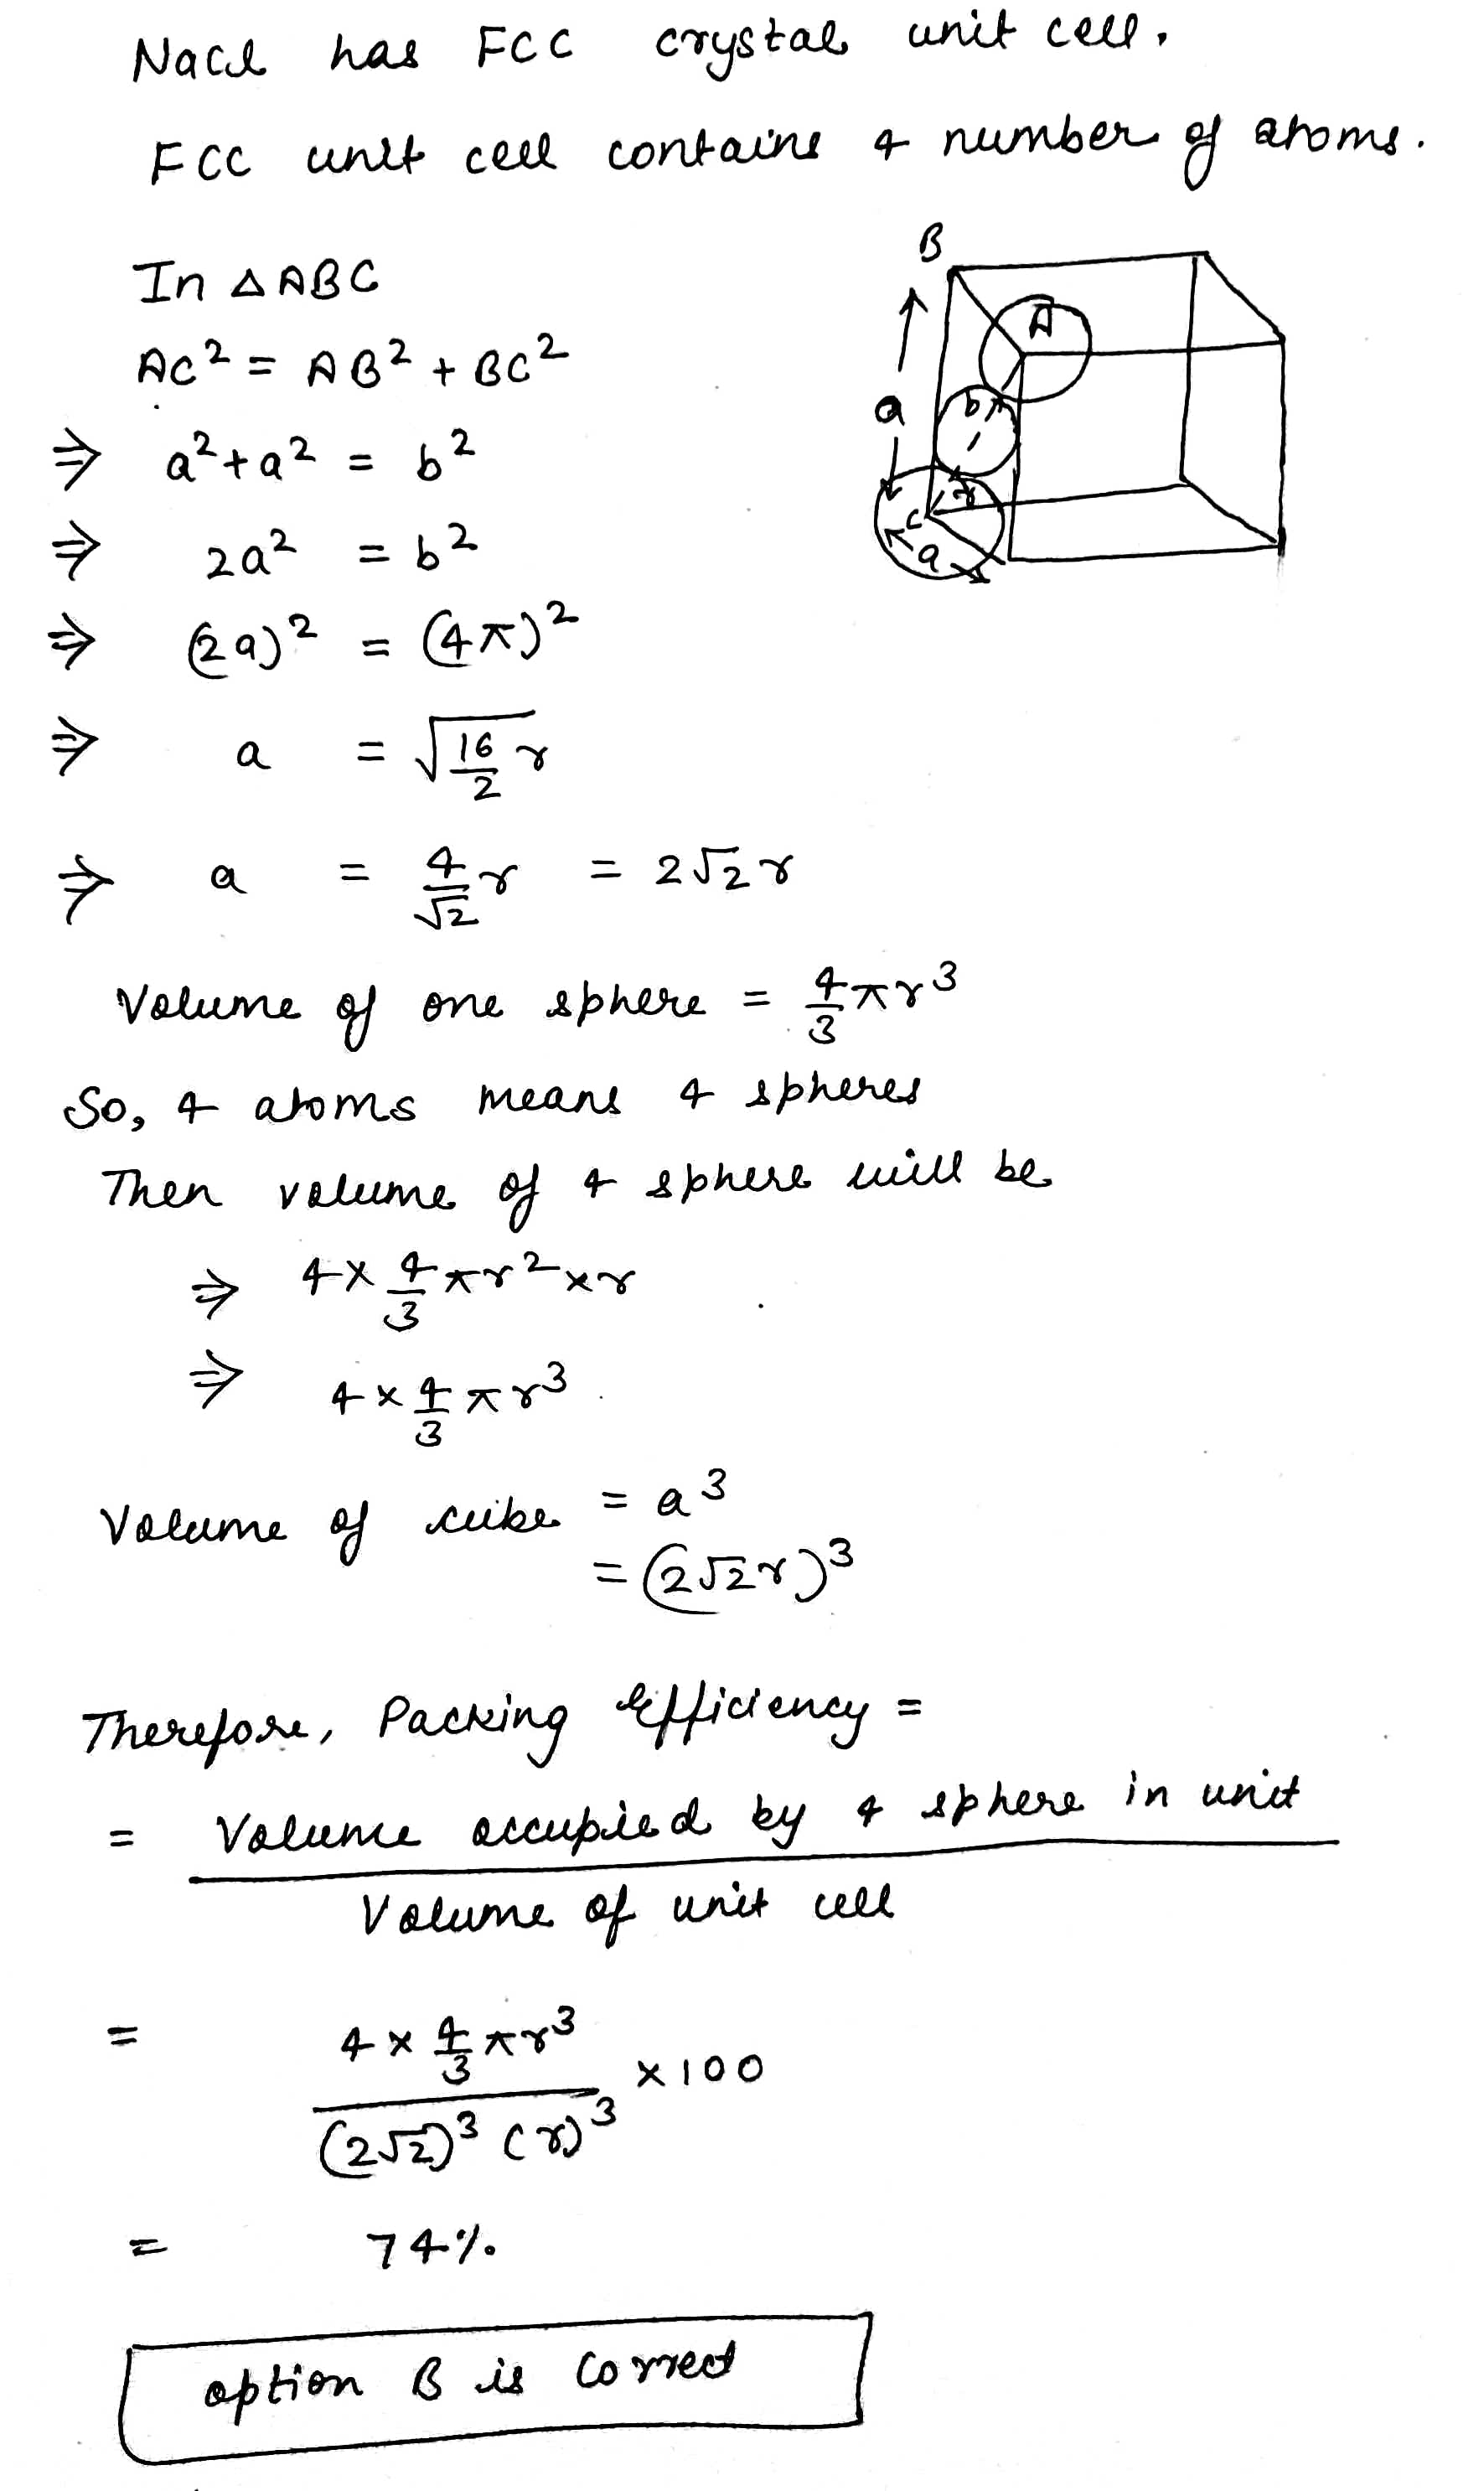 Nacl has FCC crystal unit cell.
FCC unit cell contains 4 number of atoms.
In △ABC
AC² = AB² + BC²
⇒ a² + a² = b²
⇒ 2a² = b²
⇒ (2a)² = (4π)²
⇒ a = √(16/2) r
⇒ a = 4/√2 r = 2√2 r
B
A
a
b
r
C
a
Volume of one sphere = 4/3 πr³
So, 4 atoms means 4 spheres
Then volume of 4 sphere will be
⇒ 4 × 4/3 πr² × r
⇒ 4 × 4/3 πr³
Volume of cube = a³
= (2√2 r)³
Therefore, Packing Efficiency =
= Volume occupied by 4 sphere in unit
Volume of unit cell
= 4 × 4/3 πr³
× 100
(2√2)³ (r)³
= 74%
option B is correct